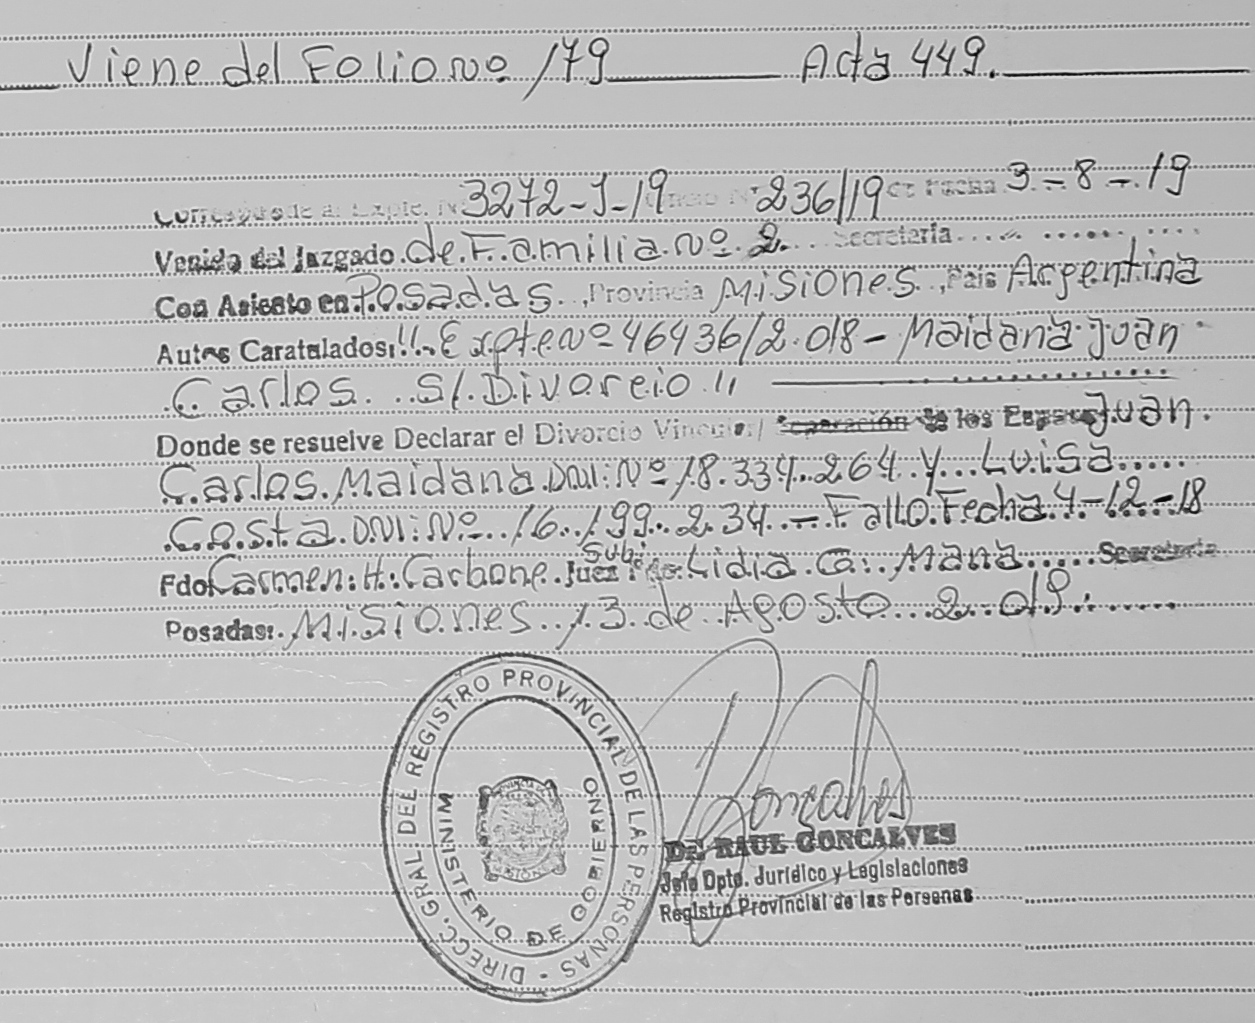 Viene del Folio Nº 179 Acta 449.
Corresponde al Expte. Nº 3272-J-19 Oficio Nº 236/19 de Fecha 3-8-19
Venido del Juzgado de Familia Nº 2 Secretaria
Con Asiento en Posadas, Provincia Misiones, Pais Argentina
Autos Caratulados: "Expte Nº 46436/2018 - Maidana Juan
Carlos S/ Divorcio"
Donde se resuelve Declarar el Divorcio Vincular/ Separación de los Esposos Juan
Carlos Maidana DNI: Nº 18.334.264 y Luisa
Costa DNI: Nº 16.199.234 - Fallo Fecha 4-12-18
Fdo Carmen: H: Carbone Juez Sub. Fdo: Lidia G: Mana Secretaria
Posadas: Misiones 13 de Agosto 2.019
DIRECC. GRAL. DEL REGISTRO PROVINCIAL DE LAS PERSONAS -
MINISTERIO DE GOBIERNO
Goncalves
Dr. RAUL GONCALVES
Jefe Dpto. Jurídico y Legislaciones
Registro Provincial de las Personas